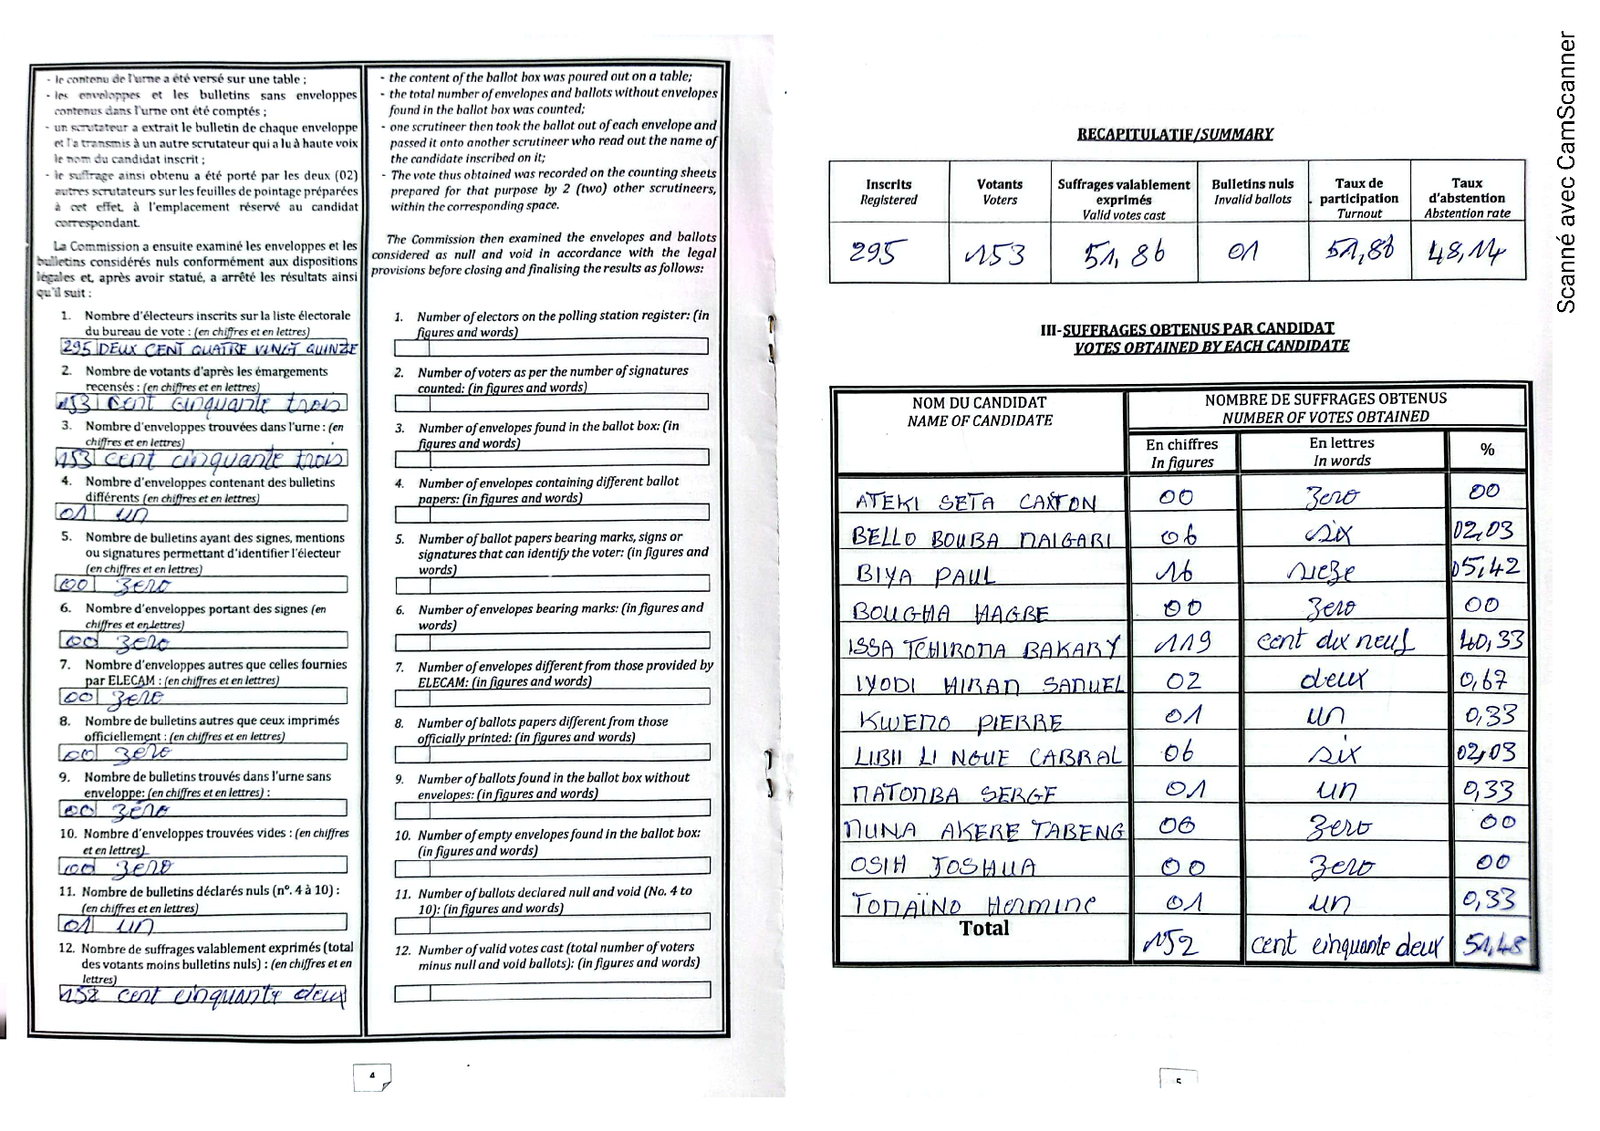 - le contenu de l'urne a été versé sur une table ;
- les enveloppes et les bulletins sans enveloppes
contenus dans l'urne ont été comptés ;
- un scrutateur a extrait le bulletin de chaque enveloppe
et l'a transmis à un autre scrutateur qui a lu à haute voix
le nom du candidat inscrit ;
- le suffrage ainsi obtenu a été porté par les deux (02)
autres scrutateurs sur les feuilles de pointage préparées
à cet effet, à l'emplacement réservé au candidat
correspondant.
La Commission a ensuite examiné les enveloppes et les
bulletins considérés nuls conformément aux dispositions
légales et, après avoir statué, a arrêté les résultats ainsi
qu'il suit :
1. Nombre d'électeurs inscrits sur la liste électorale
du bureau de vote : (en chiffres et en lettres)
295 DEUX CENT QUATRE VINGT QUINZE
2. Nombre de votants d'après les émargements
recensés : (en chiffres et en lettres)
153 cent cinquante trois
3. Nombre d'enveloppes trouvées dans l'urne : (en
chiffres et en lettres)
153 cent cinquante trois
4. Nombre d'enveloppes contenant des bulletins
différents (en chiffres et en lettres)
01 un
5. Nombre de bulletins ayant des signes, mentions
ou signatures permettant d'identifier l'électeur
(en chiffres et en lettres)
00 zero
6. Nombre d'enveloppes portant des signes (en
chiffres et en lettres)
00 zero
7. Nombre d'enveloppes autres que celles fournies
par ELECAM : (en chiffres et en lettres)
00 zero
8. Nombre de bulletins autres que ceux imprimés
officiellement : (en chiffres et en lettres)
00 zero
9. Nombre de bulletins trouvés dans l'urne sans
enveloppe: (en chiffres et en lettres) :
00 zéro
10. Nombre d'enveloppes trouvées vides : (en chiffres
et en lettres)
00 zero
11. Nombre de bulletins déclarés nuls (n°. 4 à 10) :
(en chiffres et en lettres)
01 un
12. Nombre de suffrages valablement exprimés (total
des votants moins bulletins nuls) : (en chiffres et en
lettres)
152 cent cinquante deux
- the content of the ballot box was poured out on a table;
- the total number of envelopes and ballots without envelopes
found in the ballot box was counted;
- one scrutineer then took the ballot out of each envelope and
passed it onto another scrutineer who read out the name of
the candidate inscribed on it;
- The vote thus obtained was recorded on the counting sheets
prepared for that purpose by 2 (two) other scrutineers,
within the corresponding space.
The Commission then examined the envelopes and ballots
considered as null and void in accordance with the legal
provisions before closing and finalising the results as follows:
1. Number of electors on the polling station register: (in
figures and words)
2. Number of voters as per the number of signatures
counted: (in figures and words)
3. Number of envelopes found in the ballot box: (in
figures and words)
4. Number of envelopes containing different ballot
papers: (in figures and words)
5. Number of ballot papers bearing marks, signs or
signatures that can identify the voter: (in figures and
words)
6. Number of envelopes bearing marks: (in figures and
words)
7. Number of envelopes different from those provided by
ELECAM: (in figures and words)
8. Number of ballots papers different from those
officially printed: (in figures and words)
9. Number of ballots found in the ballot box without
envelopes: (in figures and words)
10. Number of empty envelopes found in the ballot box:
(in figures and words)
11. Number of ballots declared null and void (No. 4 to
10): (in figures and words)
12. Number of valid votes cast (total number of voters
minus null and void ballots): (in figures and words)
4
RECAPITULATIF/SUMMARY
Inscrits Votants Suffrages valablement Bulletins nuls Taux de Taux
Registered Voters exprimés Invalid ballots participation d'abstention
Valid votes cast Turnout Abstention rate
295 153 51,86 01 51,86 48,14
III-SUFFRAGES OBTENUS PAR CANDIDAT
VOTES OBTAINED BY EACH CANDIDATE
NOM DU CANDIDAT NOMBRE DE SUFFRAGES OBTENUS
NAME OF CANDIDATE NUMBER OF VOTES OBTAINED
En chiffres En lettres %
In figures In words
ATEKI SETA CAXTON 00 zero 00
BELLO BOUBA MAIGARI 06 six 02,03
BIYA PAUL 16 sieze 05,42
BOUGHA HAGBE 00 zero 00
ISSA TCHIROMA BAKARY 119 cent dix neuf 40,33
IYODI HIRAM SAMUEL 02 deux 0,67
KWEMO PIERRE 01 un 0,33
LIBII LI NGUE CABRAL 06 six 02,03
MATOMBA SERGE 01 un 0,33
MUNA AKERE TABENG 00 zero 00
OSIH JOSHUA 00 zero 00
TOMAÏNO Hermine 01 un 0,33
Total 152 cent cinquante deux 51,48
5
Scanné avec CamScanner